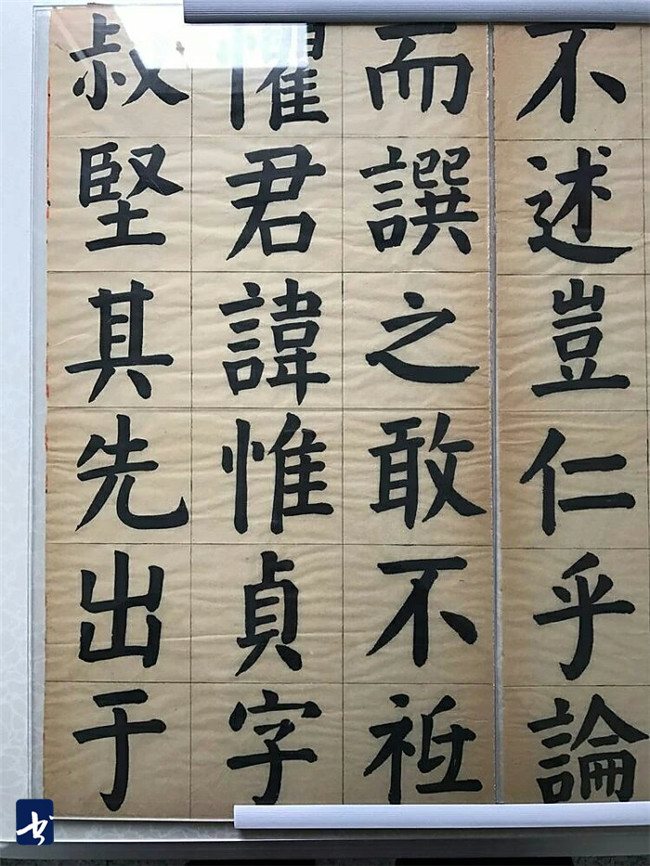 不述豈仁乎論
而譔之敢不祗
懼君諱惟貞字
叔堅其先出于